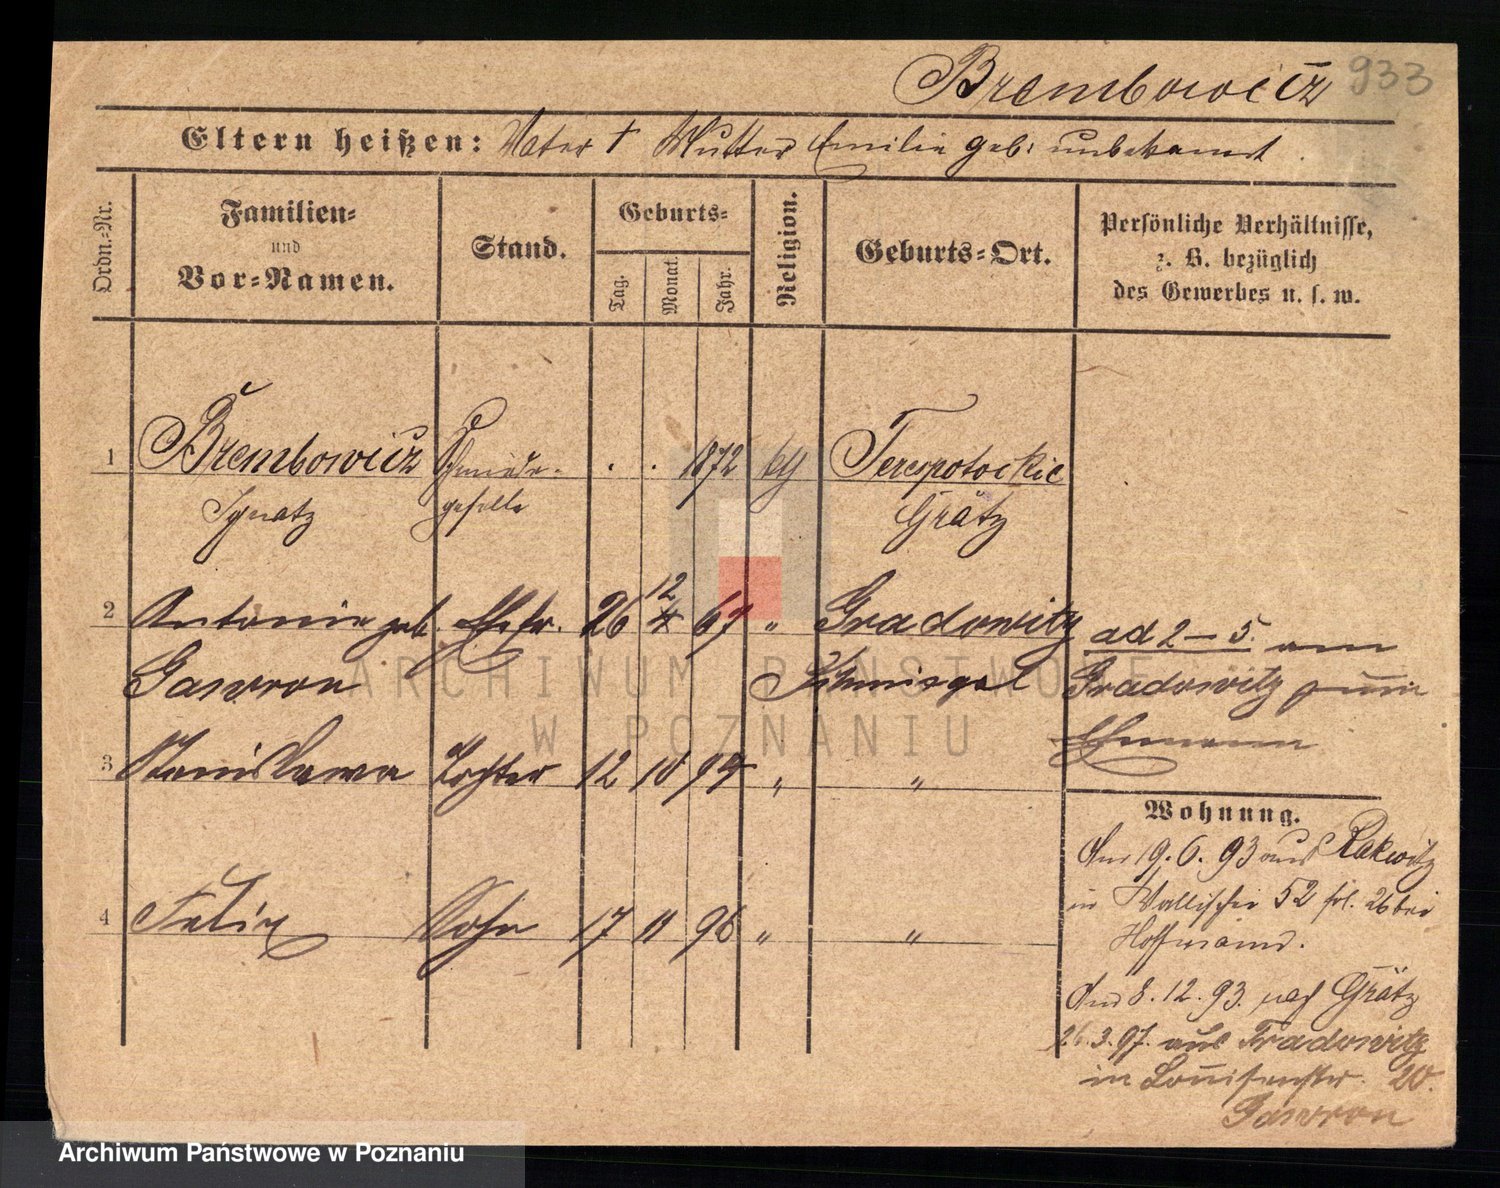 Brembowicz 933
Eltern heißen: Vater † Mutter Emilie geb. unbekannt.
Ordn.=Nr.
Familien=
und
Vor=Namen.
Stand.
Geburts=
Tag.
Monat.
Jahr.
Religion.
Geburts=Ort.
Persönliche Verhältnisse,
z. B. bezüglich
des Gewerbes u. s. w.
1 Brembowicz Schmiede- . . 1872 kth
Ignatz geselle Grätz
2 Antonie geb. Ehefr. 26 12 67 " Gradowitz
Gawron Schmiegel
ad 2–5. am
Gradowitz zum
Ehemann
3 Stanislawa Tochter 12 10 94 " "
4 Felix Sohn 17 11 96 " "
Wohnung.
Am 19.6.93 aus Rakwitz
in Wallischei 52 bei
Hoffmann.
Am 8.12.93. nach Grätz
26.3.97. aus Gradowitz
in Louisenstr. 20.
Gawron
ARCHIWUM PAŃSTWOWE
W POZNANIU
Archiwum Państwowe w Poznaniu